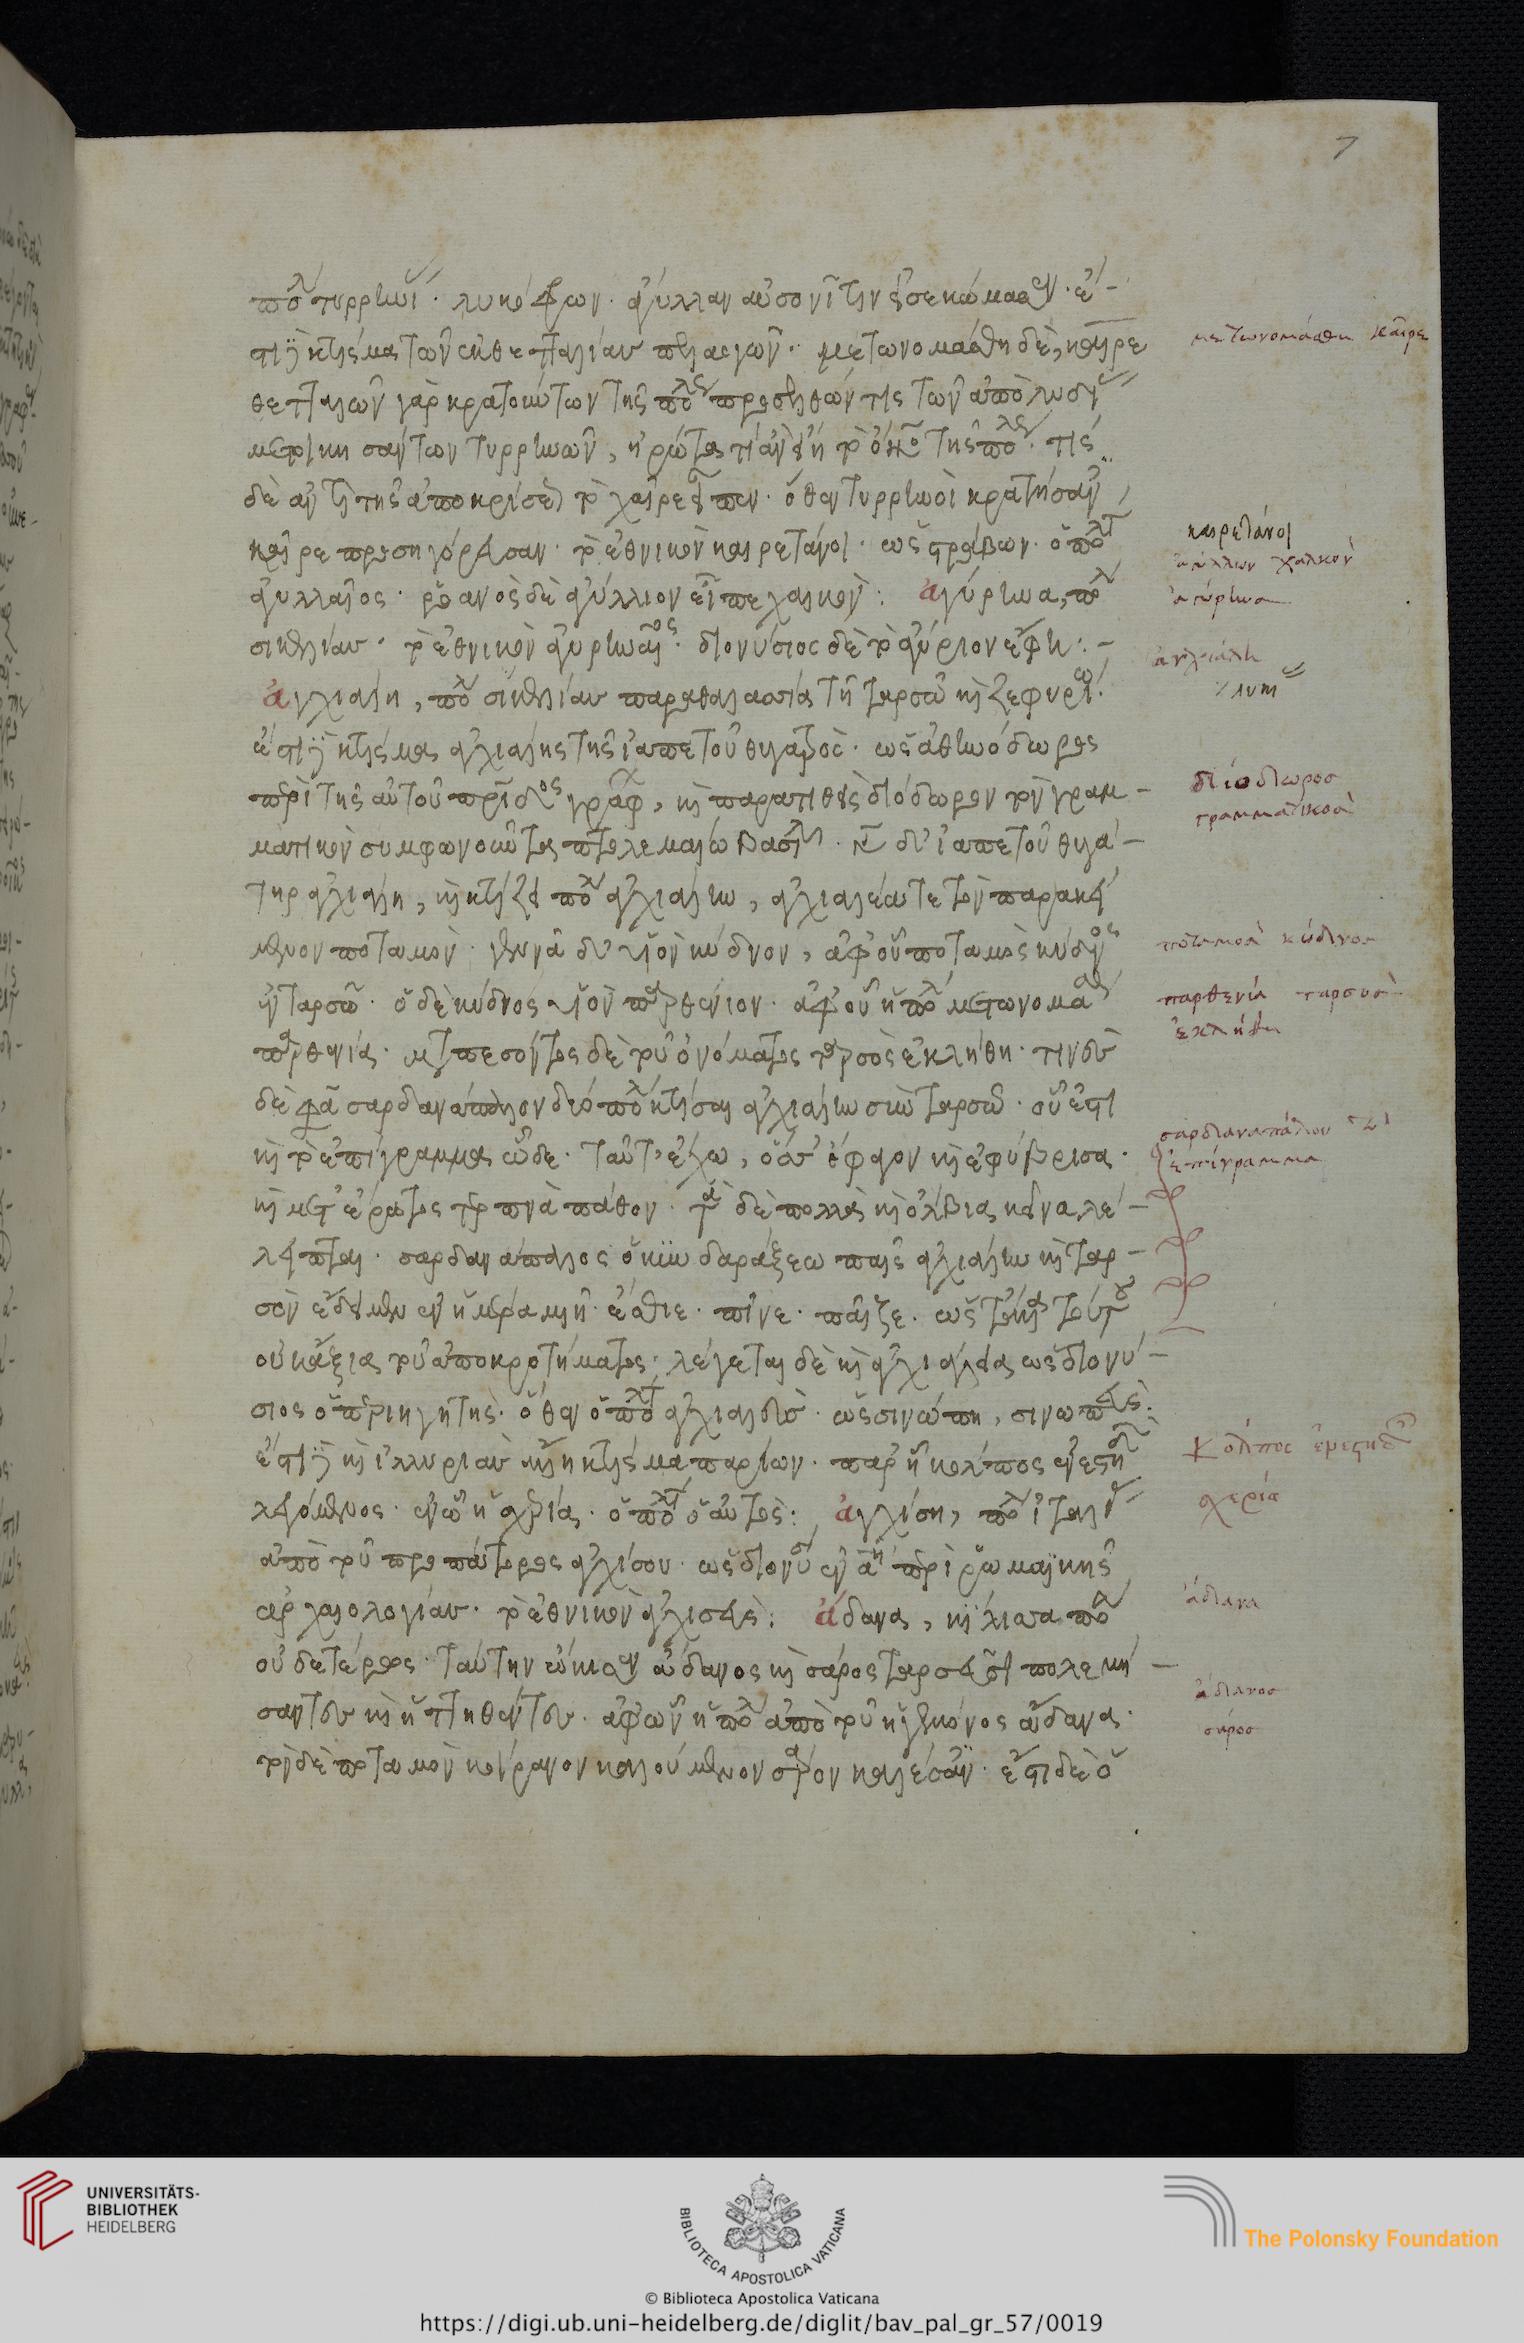 7
πόλ τυρρηνί. λυκόφρων. ἄγυλλαν αὐσονῖτιν εἰσεκώμασεν. ἔ-
στι κτίσμα τῶν ἐκ θετταλίας πελασγῶν. μετωνομάσθη δὲ, καῖρε
θετταλῶν γὰρ κρατούντων τῆς πόλ προσελθών τις τῶν ἀπὸ λυσ
μετοικησάντων τυρρηνῶν, ἠρώτα τί ἂν εἴη τὸ ὄνο τῆς πόλ. τίς
δὲ ἀντὶ τῆς ἀποκρίσε τὸ χαῖρε εἶπεν. ὅθεν τυρρηνοὶ κρατήσαν
καῖρε προσηγόρευσαν. τὸ ἐθνικὸν καιρετάνοι. ὡς στράβων. ὁ πολτ
ἀγυλλαῖος. ῥιανὸς δὲ ἀγύλλιον εἶπε χαλκόν: ἀγύρινα, πόλ
σικελίας. τὸ ἐθνικὸν ἀγυριναῖος. διονύσιος δὲ τὸ ἀγύριον ἔφη:-
ἀγχιάλη, πόλ σικελίας παραθαλασσία τῇ ταρσῷ καὶ ζεφυρίω.
ἔστι κτίσμα ἀγχιάλης τῆς ἰαπετοῦ θυγατρός. ὡς ἀθηνόδωρος
περὶ τῆς αὐτοῦ πρίδος γράφ, καὶ παρατιθεὶς διόδωρον τὸν γραμ-
ματικὸν συμφωνοῦντα πτολεμαίω βασιλ. δ' ἰαπετοῦ θυγά-
τηρ ἀγχιάλη, καὶ κτίζει πόλ ἀγχιάλην, ἀγχιαλέα τε τὸν παρακεί
μενον ποταμόν. γεννᾷ δ' υἱὸν κύδνον, ἀφ' οὗ ποταμὸς κύδνος
ἐν ταρσῷ. ὁ δὲ κύδνος υἱὸν παρθένιον. ἀφ' οὗ ἡ πόλ μετωνομασ
παρθενία. μεταπεσόντος δὲ τοῦ ὀνόματος ταρσὸς ἐκλήθη. τινὲς
δὲ φα σαρδανάπαλον δύο πόλ κτίσαι ἀγχιάλην σὺν ταρσῷ. οὗ ἔστι
καὶ τὸ ἐπίγραμμα ὧδε. ταῦτ' ἔχω, ὅσσ' ἔφαγον καὶ ἐφύβρισα.
καὶ μετ' ἔρωτος τερπνὰ πάθον. τὰ δὲ πολλὰ καὶ ὄλβια κεῖνα λέ-
λειπται. σαρδανάπαλος ὁ κινδαράξεω παῖς ἀγχιάλην καὶ ταρ-
σὸν ἔδειμεν ἐν ἡμέρα μιῇ. ἔσθιε. πῖνε. παῖζε. ὡς τἄλλα τούτου
οὐκ ἄξια τοῦ ἀποκροτήματος. λέγεται δὲ καὶ ἀγχιάλεια ὡς διονύ-
σιος ὁ περιηγητής. ὅθεν ὁ πολτ ἀγχιαλεύς. ὡς σινώπη, σινωπεύς.
ἔστι καὶ ἰλλυρίας ἄλλη κτίσμα παρίων. παρ' ᾗ κόλπος ἐνεστηδ
λεγόμενος. ἐν ᾧ ἡ σχερία. ὁ πολτ ὁ αὐτός: ἀγχίση, πόλ ἰταλί
ἀπὸ τοῦ προπάτορος ἀγχίσου. ὡς διονύσ ἐν α περὶ ῥωμαϊκῆς
ἀρχαιολογίας. τὸ ἐθνικὸν ἀγχισεύς: ἄδανα, κιλικία πόλ
οὐδετέρως. ταύτην ᾤκισεν ἄδανος καὶ σάρος ταρσεῦσι πολεμή-
σαντες καὶ ἡττηθέντες. ἀφ' ὧν ἡ πόλ ἀπὸ τοῦ ἡγεμόνος ἄδανα.
τὸν δὲ ποταμὸν κοίρανον καλούμενον σάρον καλέσαν. ἔστι δὲ ὁ
μετωνομάσθη Καῖρε
καιρετάνοι
ἀγύλλιον χαλκὸν
ἀγύρινα
ἀγχιάλη
διόδωρος
γραμματικοσ
ποταμοσ κύδνοσ
παρθενία ταρσυσ
ἐκλήθη
σαρδαναπάλου τὸ
ἐπίγραμμα
Κόλπος ἐνεστηδ
σχερία
ἄδανα
ἄδανοσ
σάροσ
UNIVERSITÄTS-
BIBLIOTHEK
HEIDELBERG
BIBLIOTECA APOSTOLICA VATICANA
The Polonsky Foundation
© Biblioteca Apostolica Vaticana
https://digi.ub.uni-heidelberg.de/diglit/bav_pal_gr_57/0019